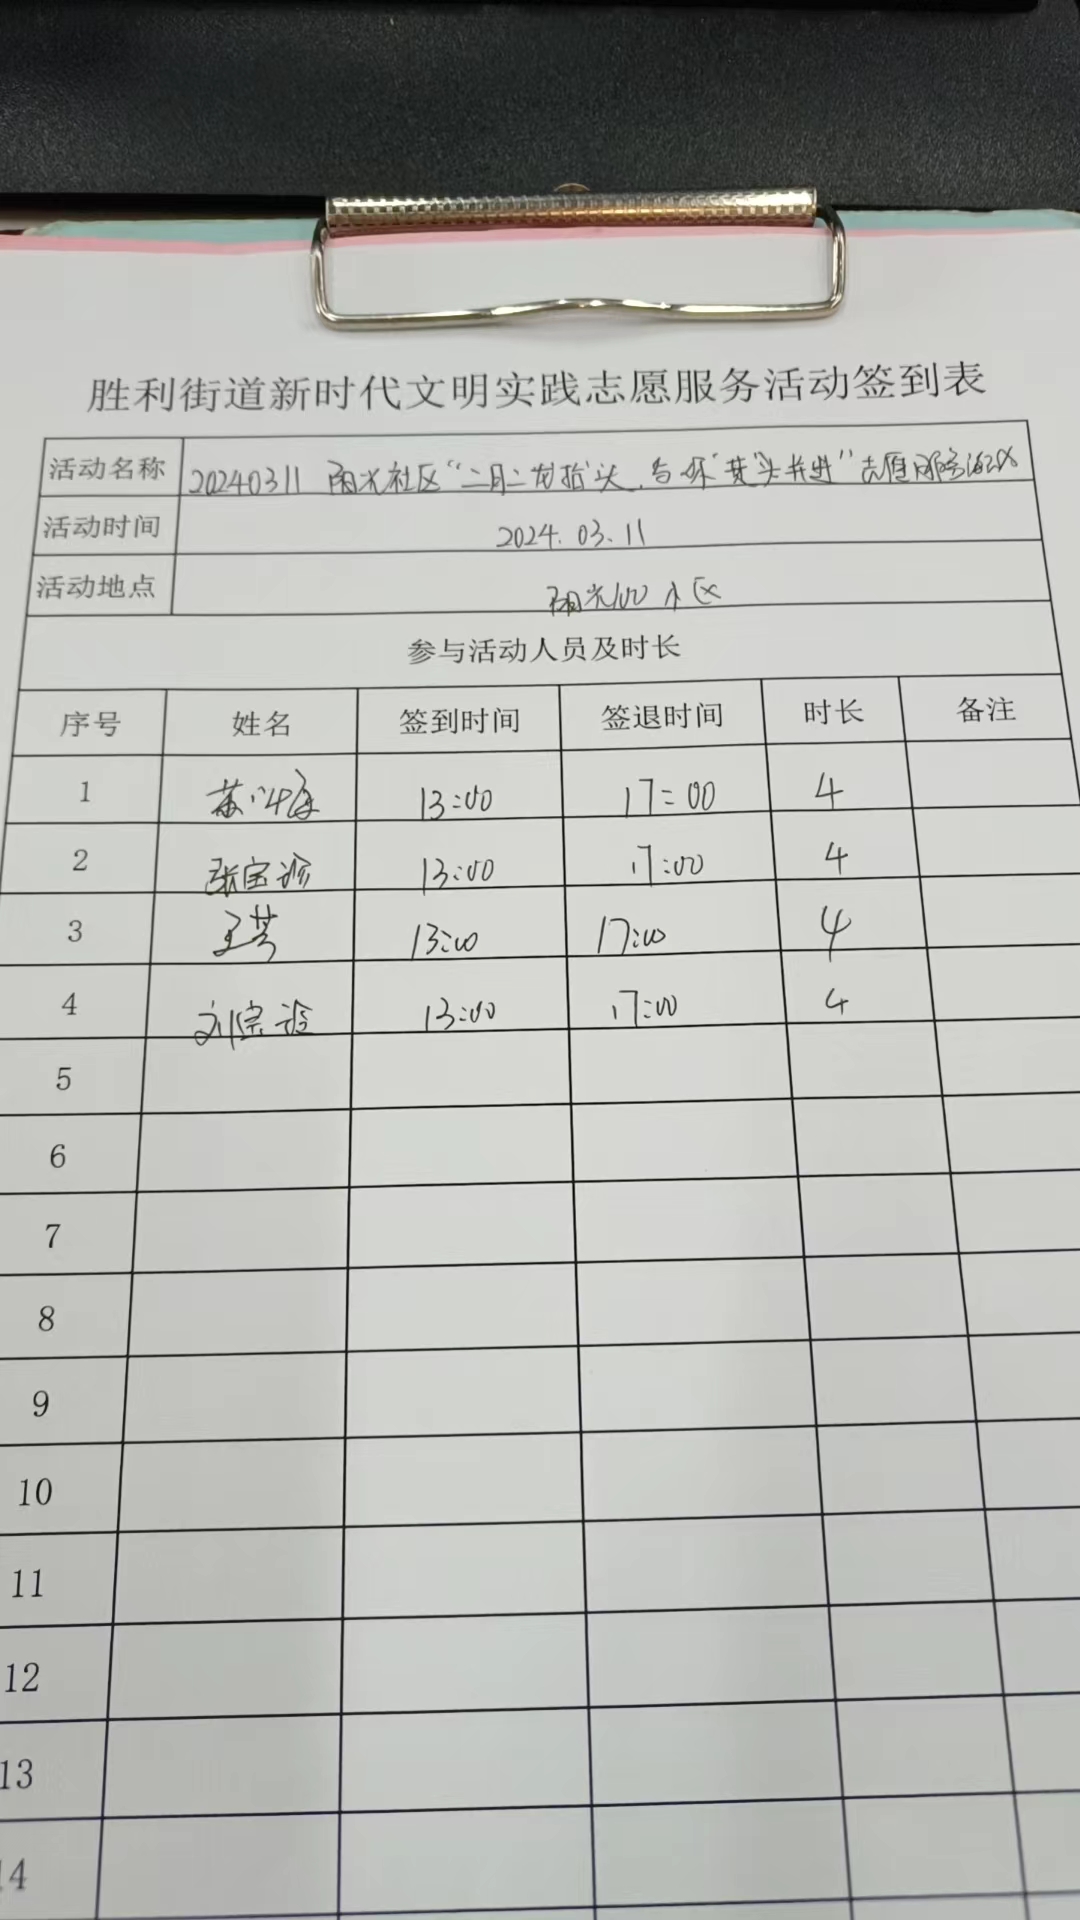 胜利街道新时代文明实践志愿服务活动签到表
活动名称 20240311 阳光社区“二月二龙抬头,与你“艾”头并进”志愿服务活动
活动时间 2024.03.11
活动地点 阳光100小区
参与活动人员及时长
序号 姓名 签到时间 签退时间 时长 备注
1 13:00 17:00 4
2 张宝珍 13:00 17:00 4
3 王芳 13:00 17:00 4
4 13:00 17:00 4
5
6
7
8
9
10
11
12
13
14